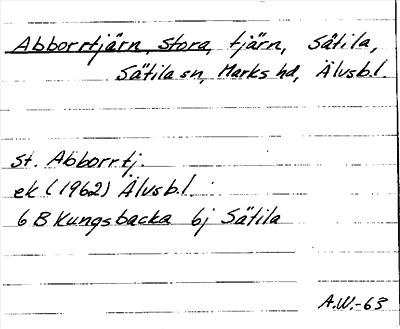 Abborrtjärn, Stora, tjärn, Sätila,
Sätila sn, Marks hd, Älvsb.l.
St. Abborrtj.
ek (1962) Älvsb.l.
6 B Kungsbacka 6j Sätila
A.W.-63